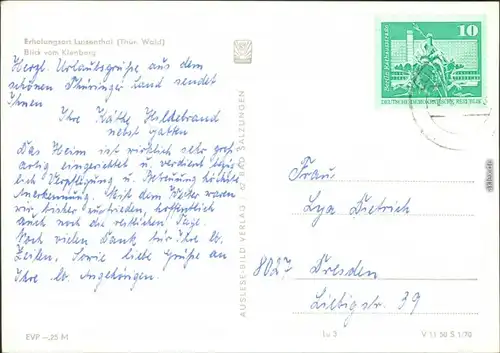 Erholungsort Lauenthal (Thür. Wald)
Blick vom Kienberg
Herzl. Urlaubsgrüße aus dem
schönen Thüringer Land sendet
Ihnen
Ihre Käthe Hildebrand
nebst Gatten
Das Heim ist wirklich sehr groß-
artig eingerichtet u. verdient bezüg-
lich Verpflegung u. Betreuung höchste
Anerkennung. Mit dem Wetter waren
wir bisher zufrieden, hoffentlich
auch noch die restlichen Tage.
Noch vielen Dank für Ihre lb.
Zeilen, sowie liebe Grüße an
Ihre lb. Angehörigen.
EVP -,25 M
AUSLESE-BILD-VERLAG 62 BAD SALZUNGEN
10
Berlin, Rathausstraße
DEUTSCHE DEMOKRATISCHE REPUBLIK
Frau
Lya Dietrich
8027 Dresden
Liebigstr. 39
Lu 3
V 11 50 S 1/70